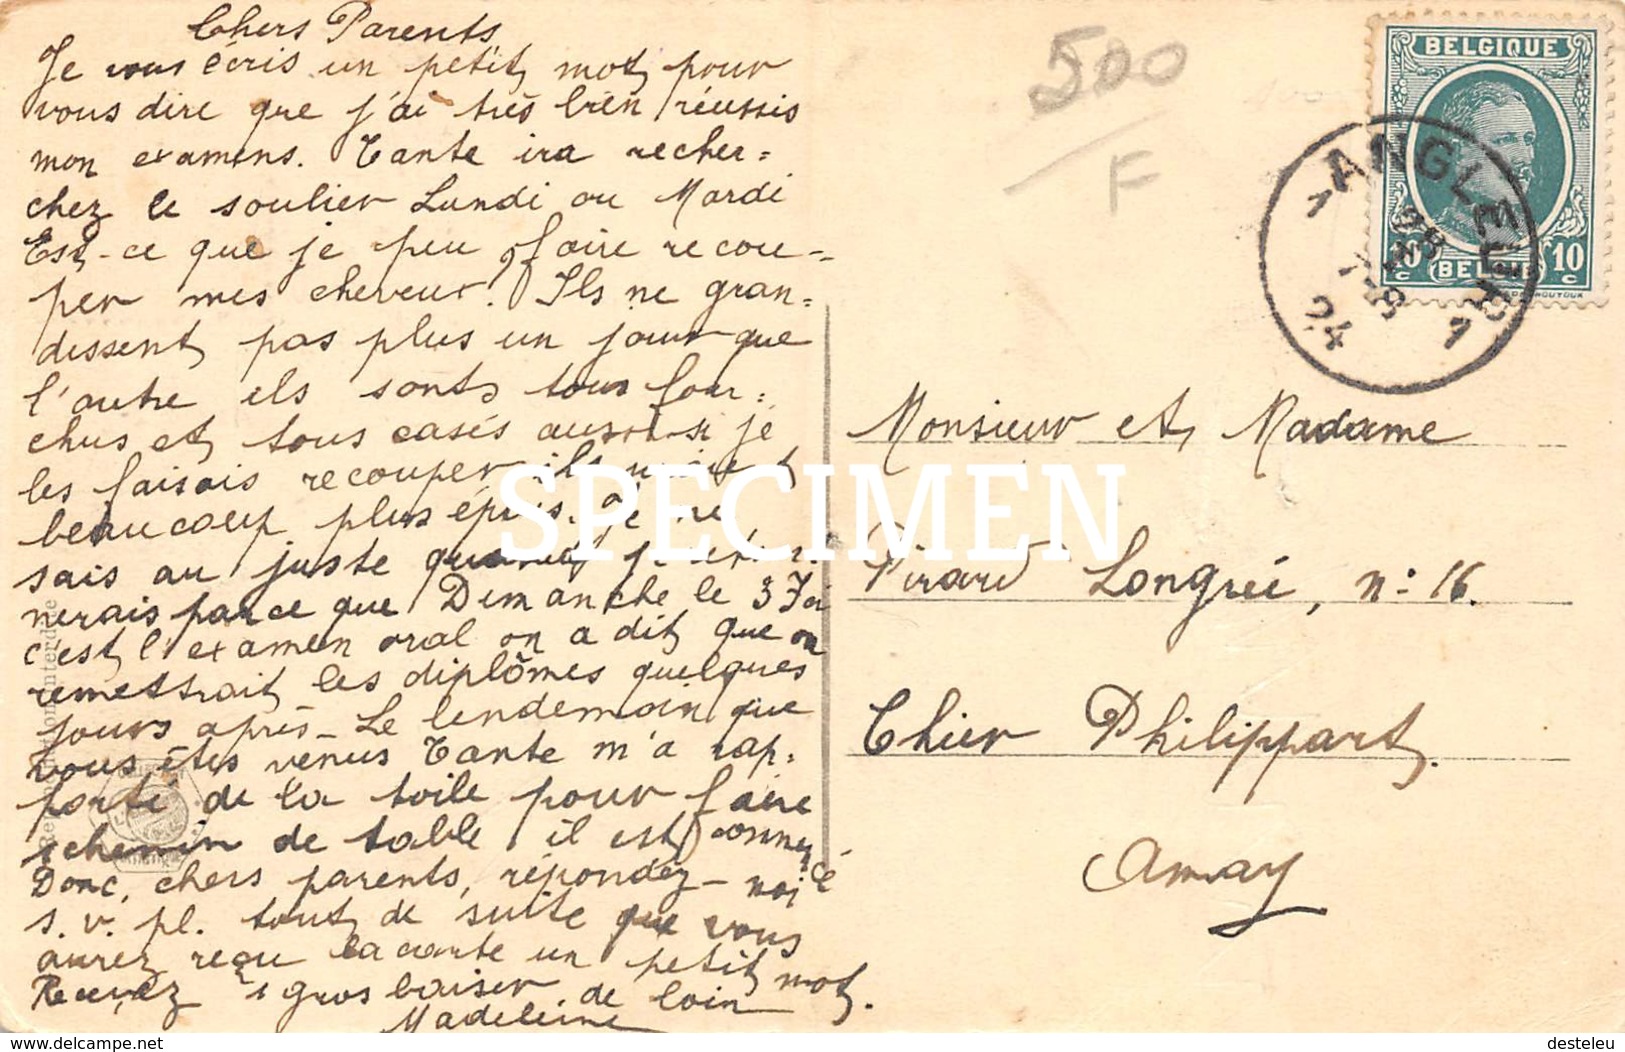 Chers Parents
Je vous écris un petit mot pour
vous dire que j'ai très bien réussis
mon examens. Tante ira recher=
chez le soulier Lundi ou Mardi
Est-ce que je peu faire recou=
per mes cheveux? Ils ne gran=
dissent pas plus un jour que
l'autre ils sonts tous four=
chus et tous casés aussi si je
les faisais recouper ils
beaucoup plus épris. Je ne
sais au juste quand
nerais parce que Dimanche le 3
c'est l'examen oral on a dit que on
remettrait les diplômes quelques
jours après - Le lendemain que
vous êtes venus Tante m'a rap=
porté de la toile pour faire
1 chemin de table il est
Donc, chers parents, répondez-moi
s. v. pl. tout de suite que vous
aurez reçu la carte un petit mot.
Recevez 1 gros baiser de loin
Madeleine
500
F
BELGIQUE
10 c BELGIË 10 c
ANGLEUR
1 1
28
24
Monsieur et Madame
Pirard Longrée, n: 16.
Thier Philippart.
Amay
SPECIMEN
delcampe.net
desteleu